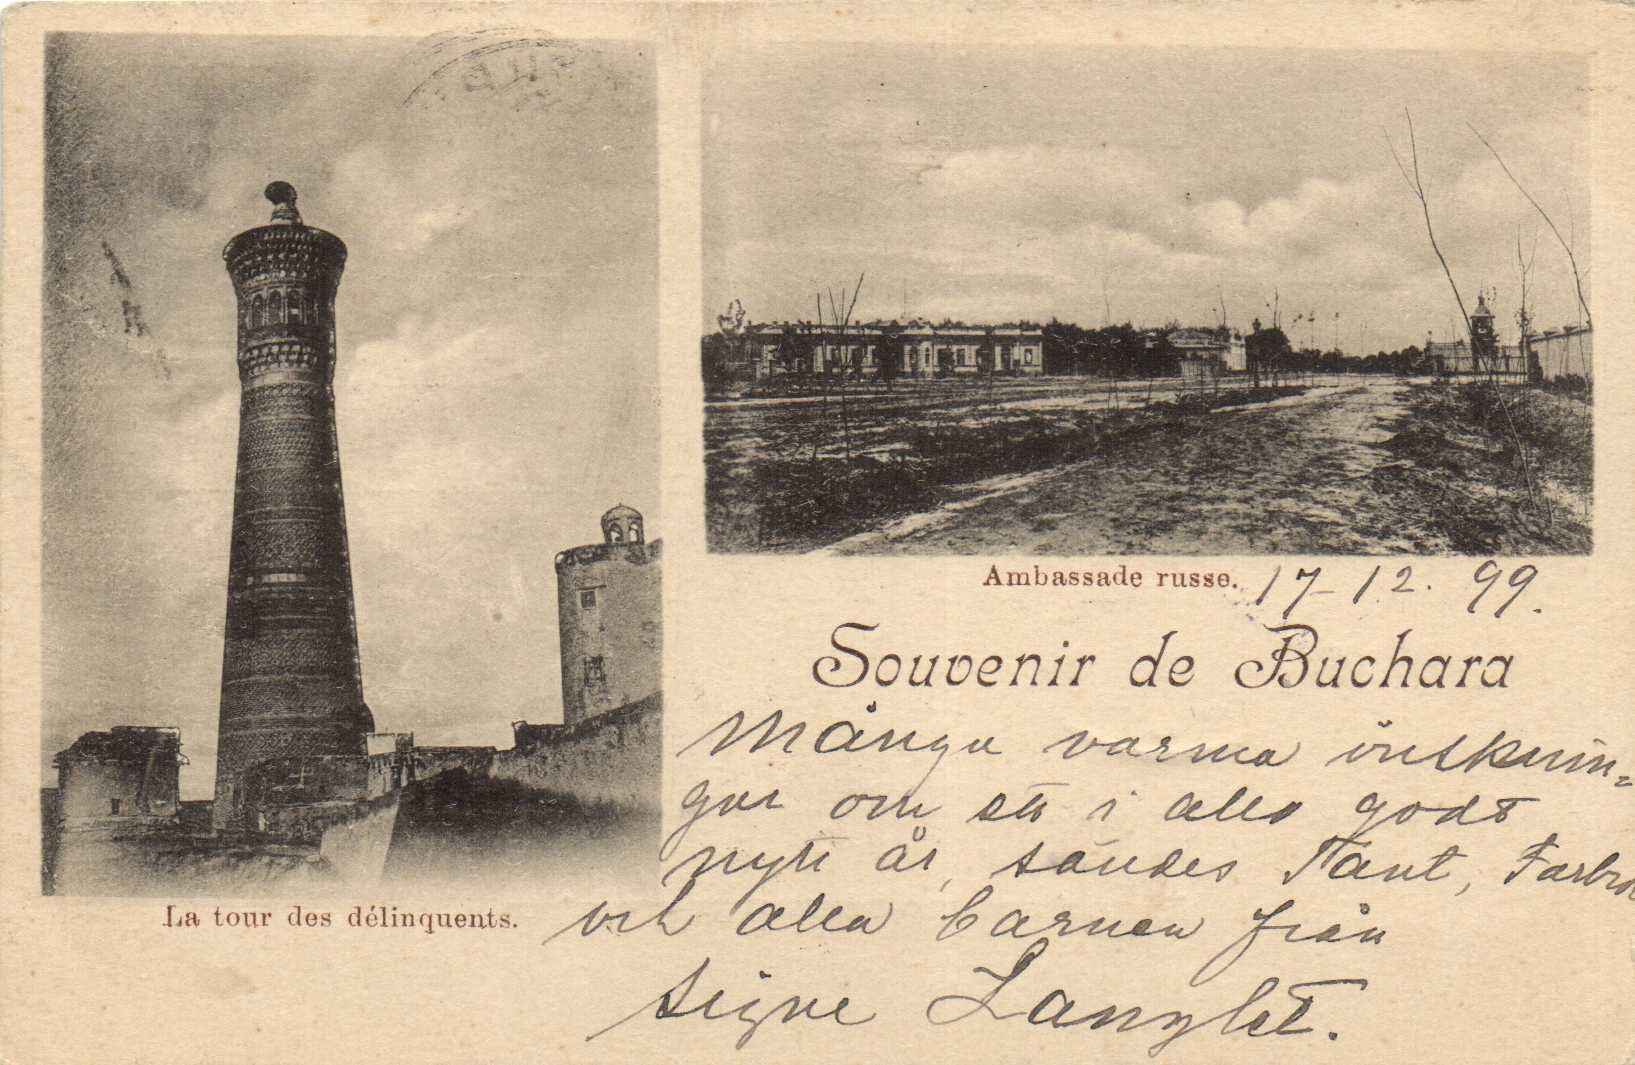 La tour des délinquents.
Ambassade russe.
17-12. 99.
Souvenir de Buchara
Många varma önsknin-
gar om ett i allo godt
nytt år, sändes Tant, Farbror
och alla barnen från
Signe Langlet.